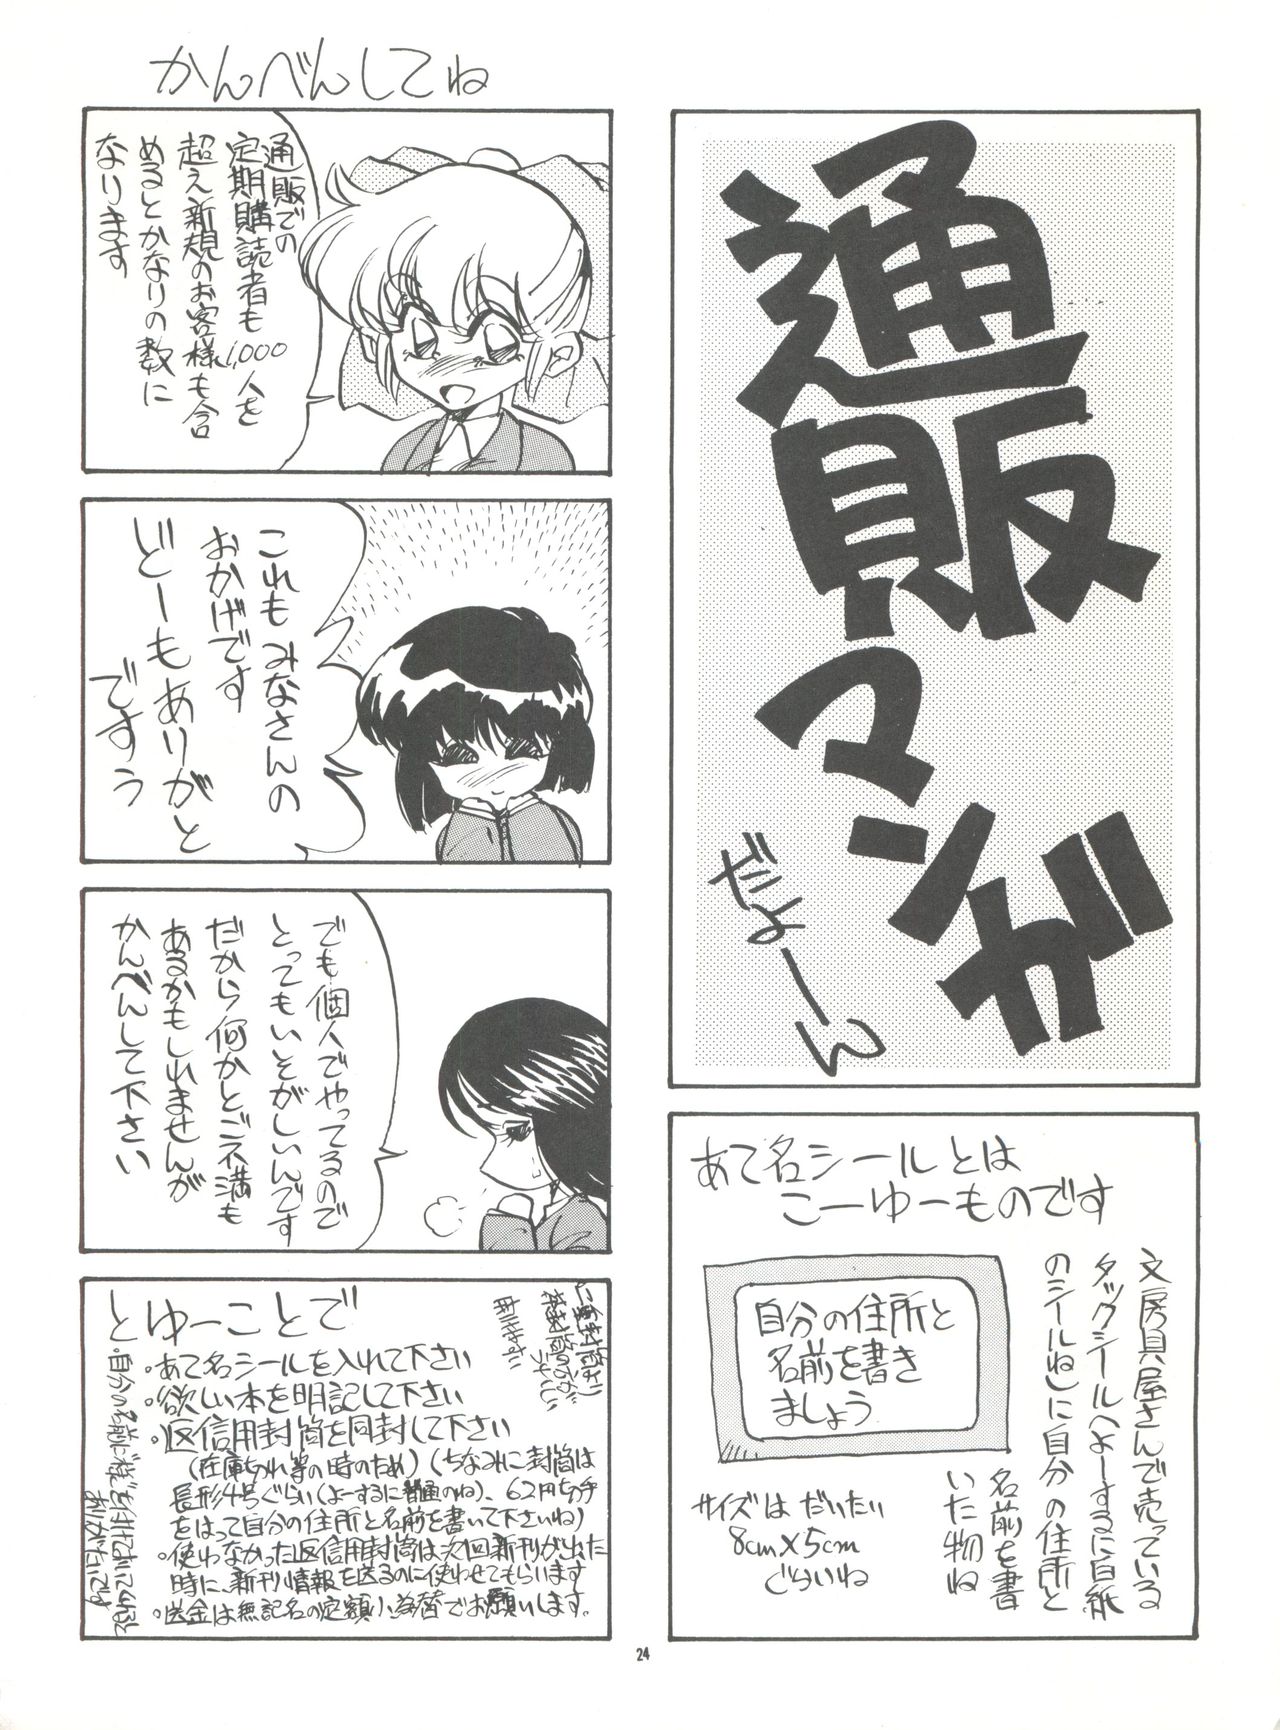 通販マンガ
だよーん
あて名シールとは
こーゆーものです
文房具屋さんで売っている
タックシール(よーするに白紙
のシールね)に自分の住所と
名前を書
いた物ね
自分の住所と
名前を書き
ましょう
サイズは だいたい
8cm×5cm
ぐらいね
かんべんしてね
通販での
定期購読者も1,000人を
超え新規のお客様も含
めるとかなりの数に
なります
これもみなさんの
おかげです
どーもありがと
ですう
でも個人でやってるので
とってもいそがしいんです
だから何かとご不満も
あるかもしれませんが
かんべんして下さい
とゆーことで
・あて名シールを入れて下さい
・欲しい本を明記して下さい
・返信用封筒を同封して下さい
(在庫切れ等の時のため)(ちなみに封筒は
長形4号ぐらい(よーするに普通のね)、62円切手
をはって自分の住所と名前を書いて下さいね)
・使わなかった返信用封筒は次回新刊が出た
時に、新刊情報を送るのに使わせてもらいます
・送金は無記名の定額小為替でお願いします。
・自分の名前に"様"を付けておいてくれると
ありがたいです
24